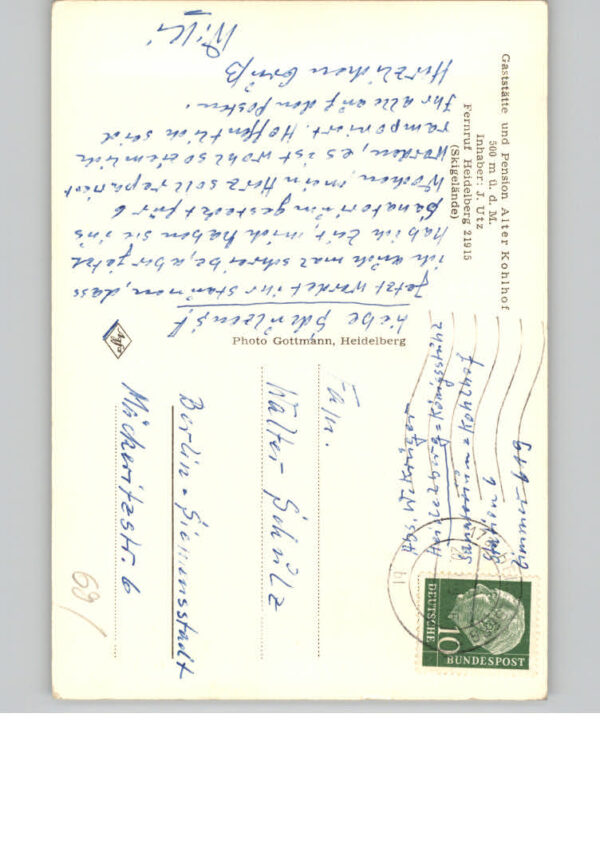 Gaststätte und Pension Alter Kohlhof
500 m ü. d. M.
Inhaber: J. Utz
Fernruf Heidelberg 21915
(Skigelände)
Liebe Schulzens!
Jetzt werdet ihr staunen, dass
ich auch mal schreibe, aber jetzt
hab ich Zeit, mich haben sie ins
Sanatorium gesteckt für 6
Wochen, mein Herz soll repariert
werden, es ist wohl so ziemlich
ramponiert. Hoffentlich seid
Ihr alle auf dem Posten.
Herzlichen Gruß
Willi
Photo Gottmann, Heidelberg
Heidelberg-Königstuhl
Sanatorium-Kohlhof
Station 6
Fam.
Walter Schulz
Berlin-Siemensstadt
Mäckeritzstr. 6
69/
10
DEUTSCHE
BUNDESPOST